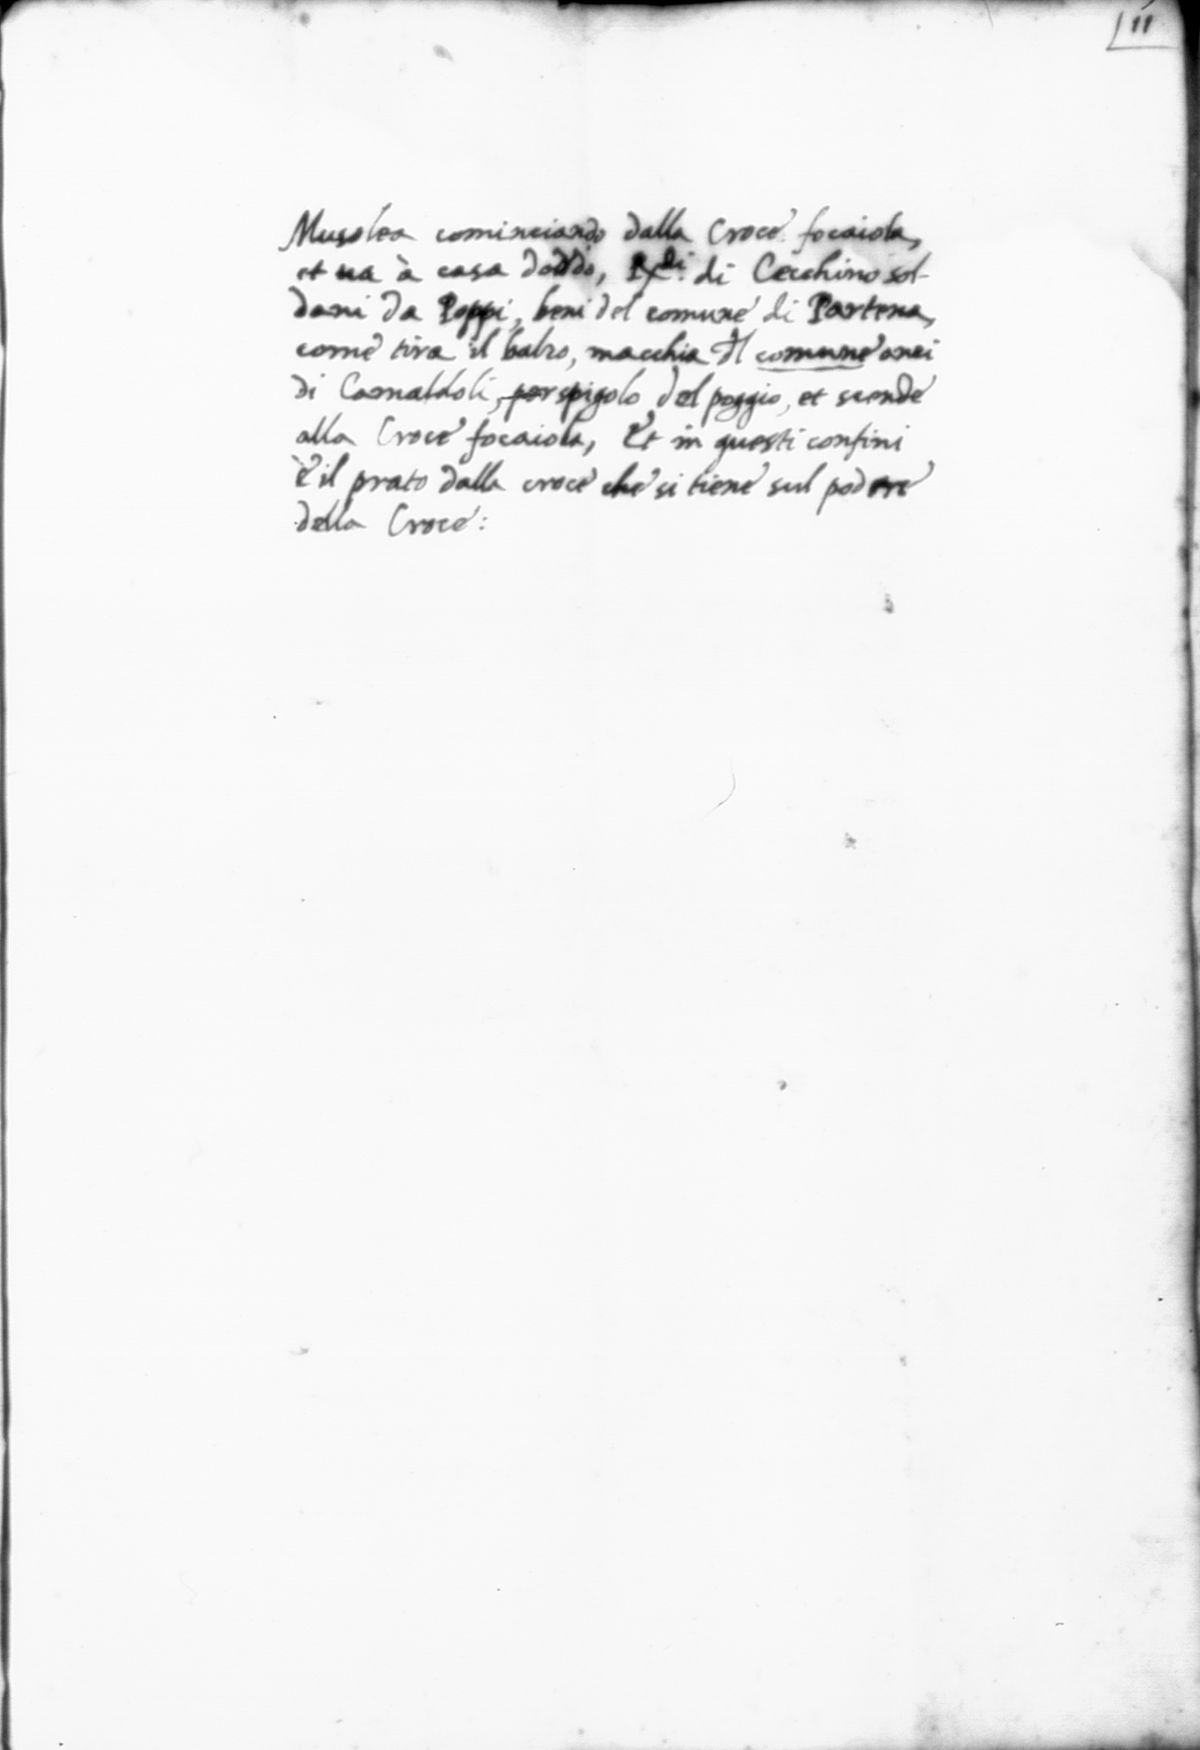 11
Musolea cominciando dalla Croce focaiola,
et ua à casa doddo, di Cecchino sol-
dani da Poppi, beni del comune di Partena,
come tira il balzo, macchia del comune anzi
di Camaldoli, per spigolo del poggio, et scende
alla Croce focaiola, Et in questi confini
è il prato dalla croce che si tiene sul podere
della Croce: